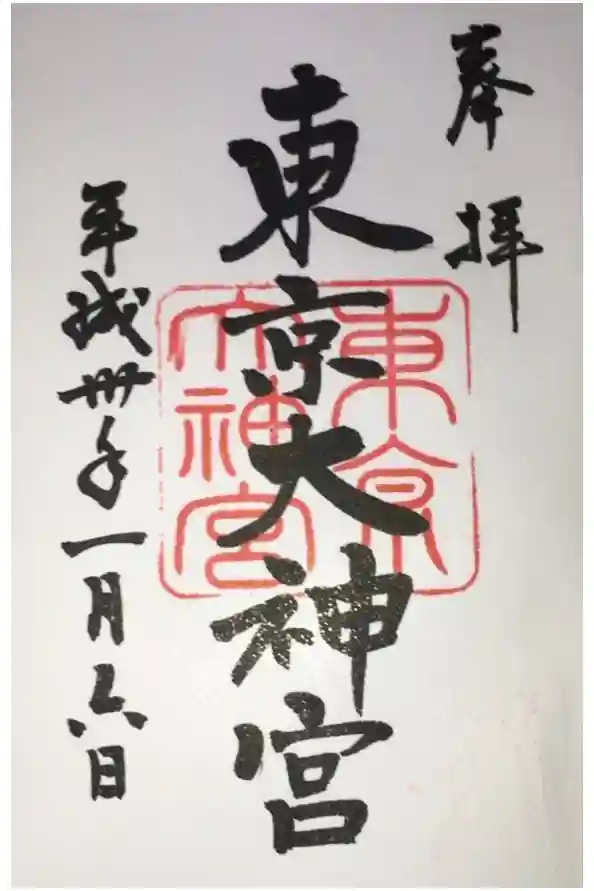 奉拝
東京大神宮
平成卅年一月六日
東京
大神宮